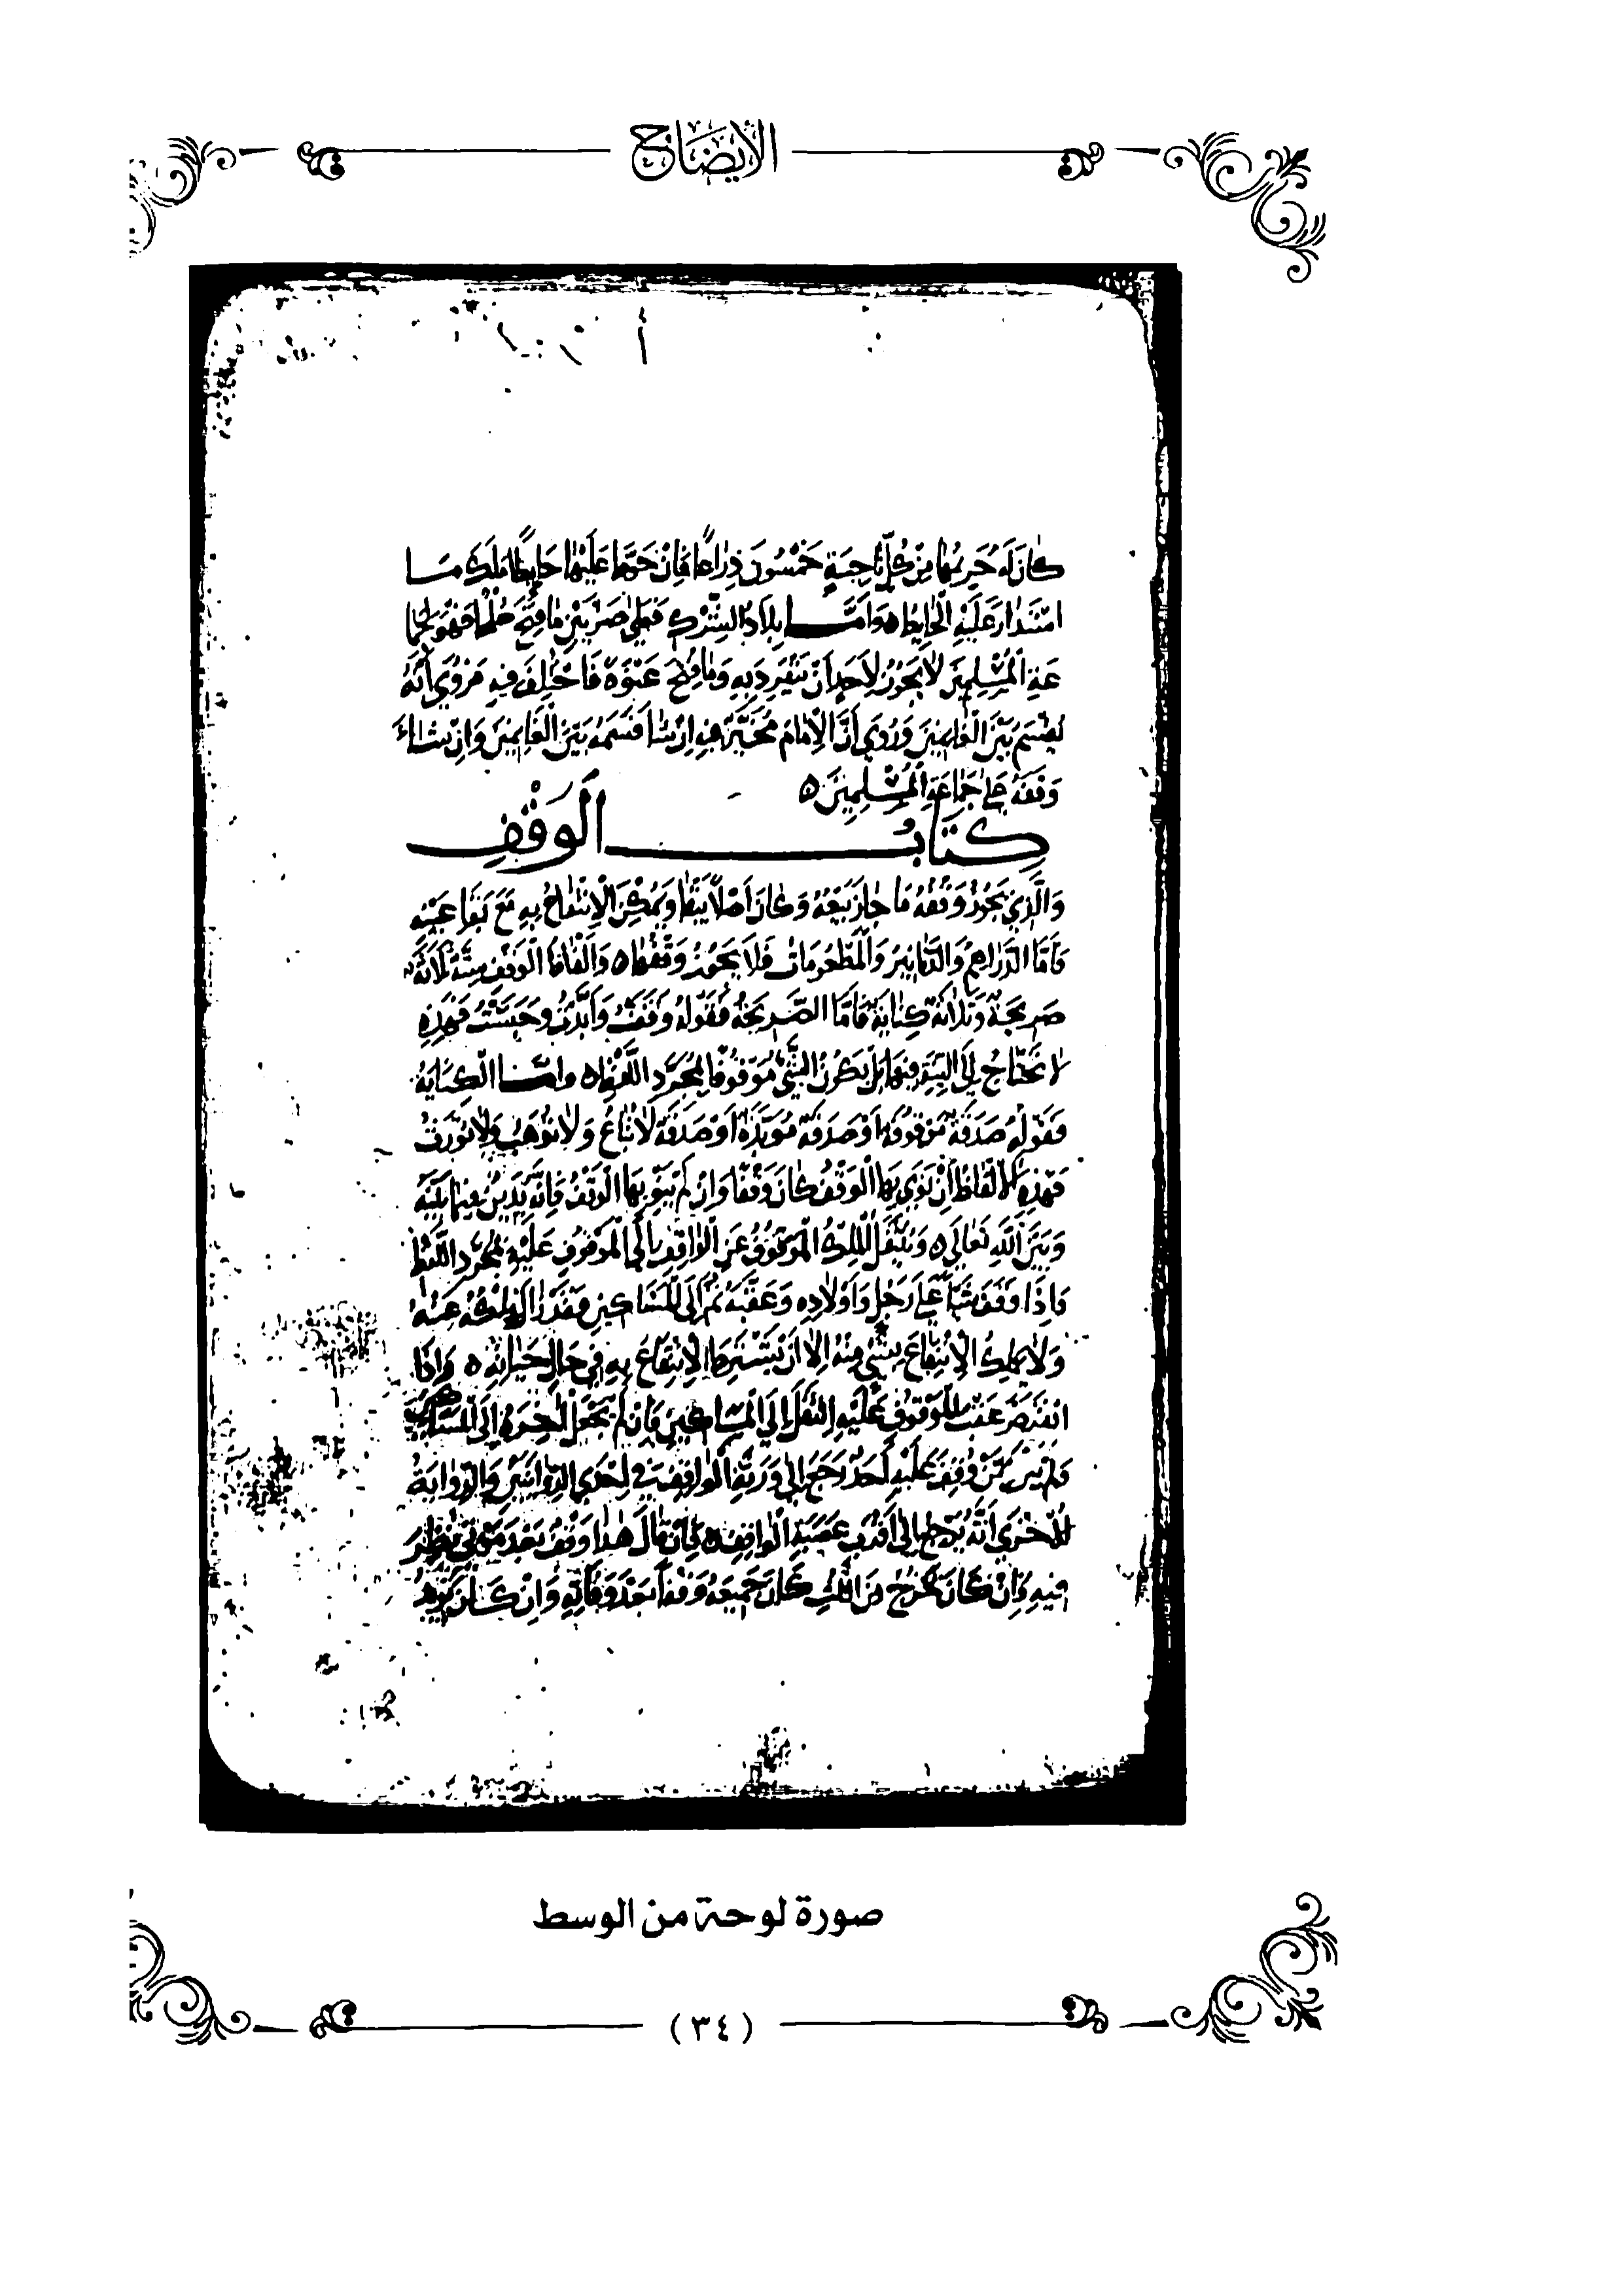 الإيضاح
كان له حريمها من كل ناحية خمسون ذراعا فإن حوط عليها حايطا ملك ما
استدار عليه الحايط وأما بلاد الشرك فعلى ضربين ما فتح صلحا فهو لجما
عة المسلمين لا يجوز لأحد أن يتفرد به وما فتح عنوة فاختلف فيه فروي أنه
يقسم بين الغانمين وروي أن الإمام مخير فيه إن شا قسمه بين الغانمين وإن شاء
وقفه على جماعة المسلمين ه
كتاب الوقف
والذي يجوز وقفه ما جاز بيعه وكان أصلا يبقا ويمكن الانتفاع به مع بقا عينه
فأما الدراهم والدنانير والمطعومات فلا يجوز وقفها ه وألفاظ الوقف ستة ثلاثة
صريحة وثلاثة كناية فأما الصريحة فقوله وقفت وأبدت وحبست فهذه
لا تحتاج إلى النية فيها بل يكون الشيء موقوفا بمجرد اللفظ ه وأما الكناية
فقوله صدقة موقوفة أو صدقة مؤبدة أو صدقة لا تباع ولا توهب ولا تورث
فهذه الألفاظ إن نوي بها الوقف كان وقفا وإن لم ينو بها الوقف فإنه يدين فيما بينه
وبين الله تعالى ه وينتقل الملك الموقوف عن الواقف إلى الموقوف عليه بمجرد اللفظ
فإذا وقف شيا على رجل وأولاده وعقبه ثم إلى المساكين فقد زال ملكه عنه
ولا يملك الانتفاع بشي منه إلا أن يشترط الانتفاع به في حال حياته ه وإذا
انقرض عقب الموقوف عليه انتقل إلى المساكين فإن لم يجعل آخره إلى المساكين
ولم يبق ممن وقف عليه أحد رجع إلى ورثة الواقف في إحدى الروايتين والرواية
الأخرى أنه يرجع إلى أقرب عصبة الواقف ه فإن قال هذا وقف بعد موتي نظر
فيه فإن كان يخرج من الثلث كان جميعه وقفا بعد وفاته وإن كان يزيد
صورة لوحة من الوسط
(٣٤)